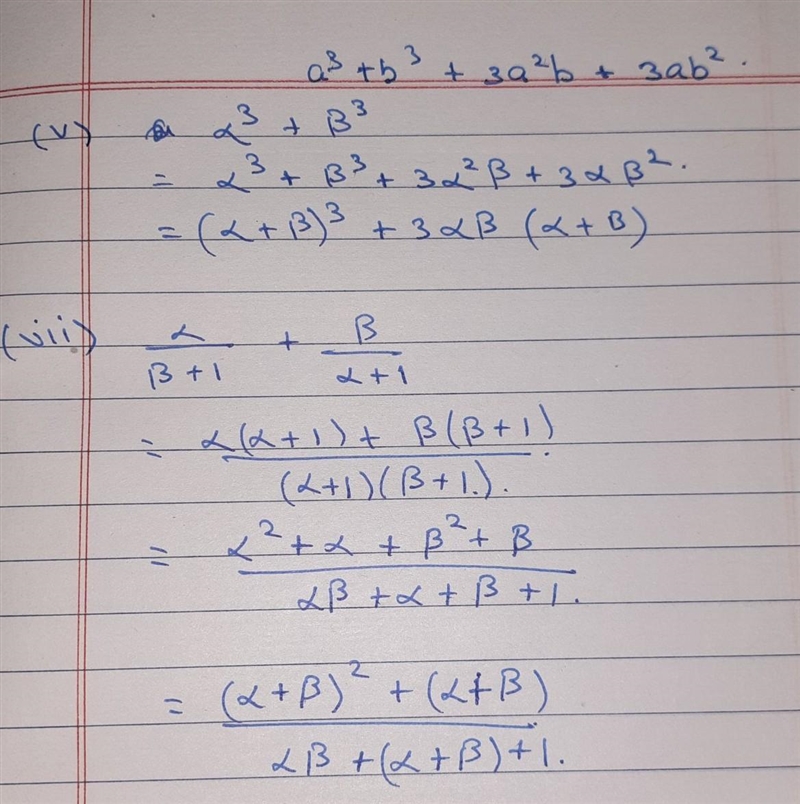 a³ + b³ + 3a²b + 3ab².
(v) α³ + β³
= α³ + β³ + 3α²β + 3αβ².
= (α + β)³ + 3αβ (α + β)
(vii) α/(β + 1) + β/(α + 1)
= (α(α + 1) + β(β + 1))/((α + 1)(β + 1)).
= (α² + α + β² + β)/(αβ + α + β + 1).
= ((α + β)² + (α + β))/(αβ + (α + β) + 1).